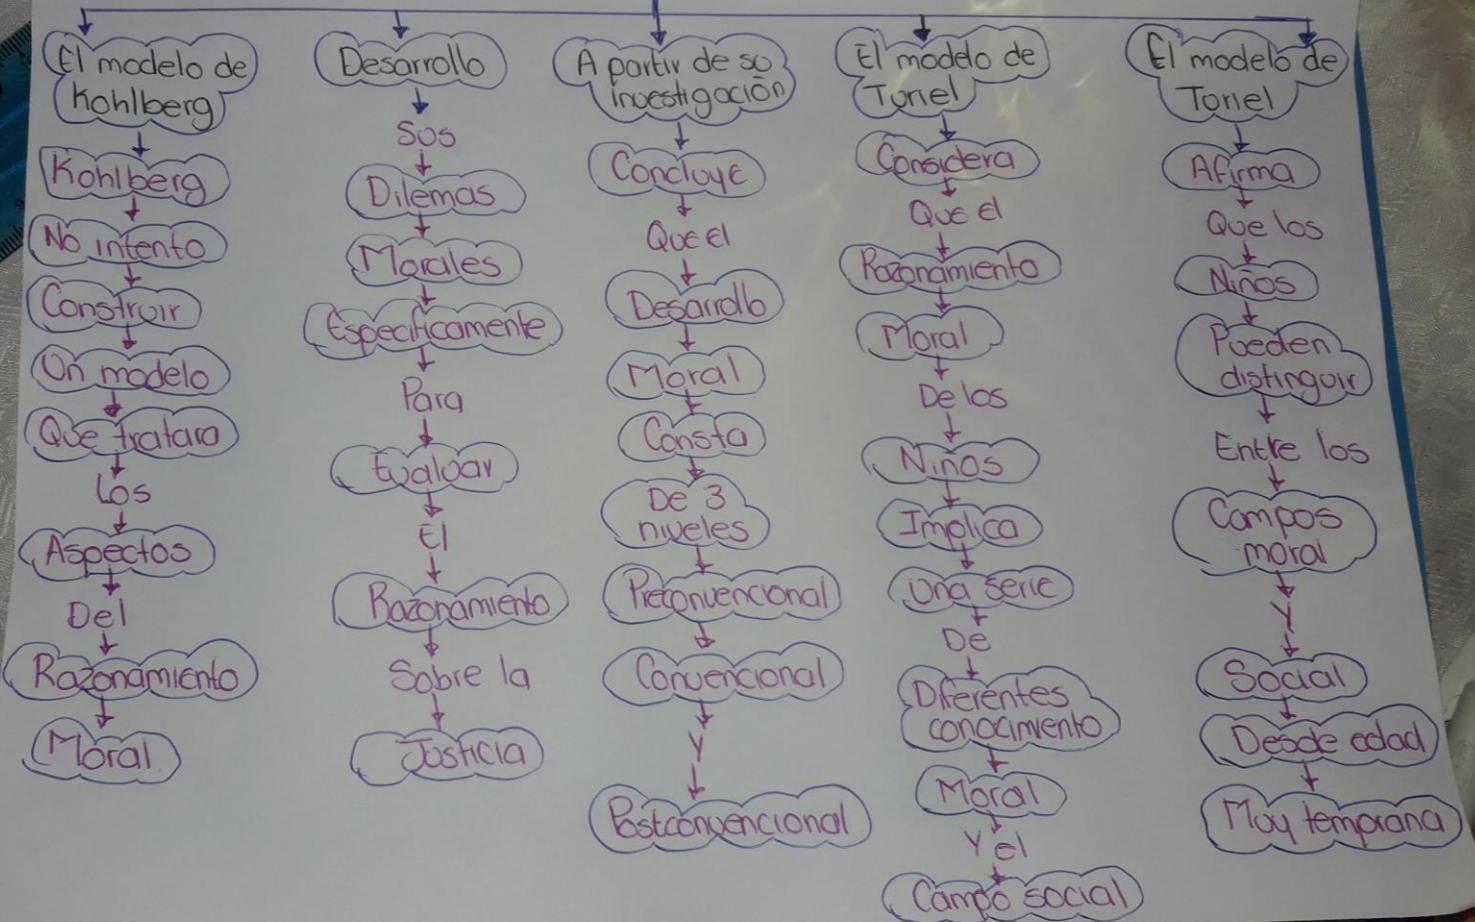 El modelo de
Kohlberg
Kohlberg
No intento
Construir
Un modelo
Que tratara
Los
Aspectos
Del
Razonamiento
Moral
Desarrollo
Sus
Dilemas
Morales
Especificamente
Para
Evaluar
El
Razonamiento
Sobre la
Justicia
A partir de su
investigación
Concluye
Que el
Desarrollo
Moral
Consta
De 3
niveles
Preconvencional
Convencional
Y
Postconvencional
El modelo de
Turiel
Considera
Que el
Razonamiento
Moral
De los
Niños
Implica
Una serie
De
Diferentes
conocimiento
Moral
Y el
Campo social
El modelo de
Turiel
Afirma
Que los
Niños
Pueden
distinguir
Entre los
Campos
moral
Y
Social
Desde edad
Muy temprana